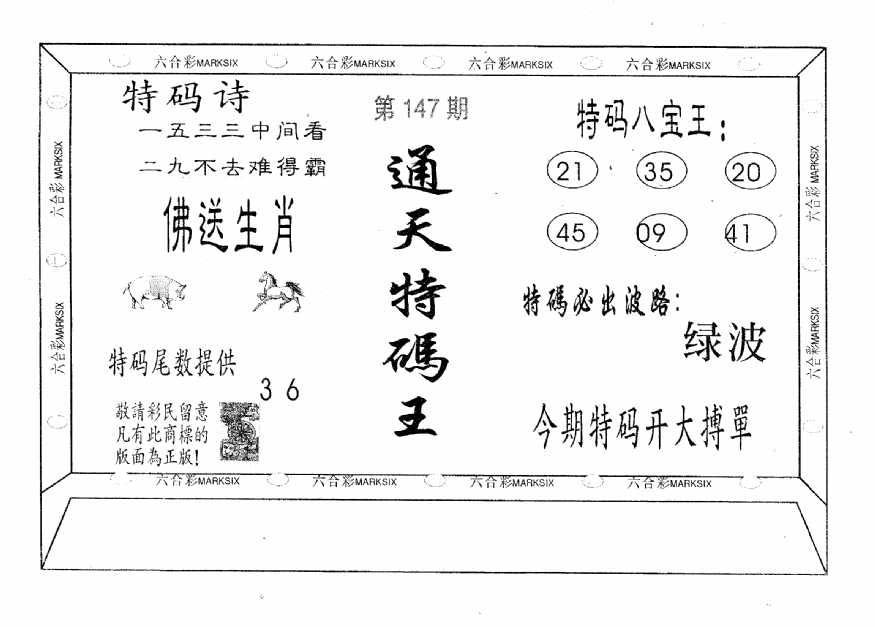 六合彩MARKSIX 六合彩MARKSIX 六合彩MARKSIX 六合彩MARKSIX
特码诗
一五三三中间看
二九不去难得霸
佛送生肖
特码尾数提供
3 6
敬請彩民留意
凡有此商標的
版面為正版!
第147期
通天特碼王
特码八宝王:
21 35 20
45 09 41
特碼必出波路:
绿波
今期特码开大搏單
六合彩MARKSIX
六合彩MARKSIX
六合彩MARKSIX
六合彩MARKSIX
六合彩MARKSIX 六合彩MARKSIX 六合彩MARKSIX 六合彩MARKSIX